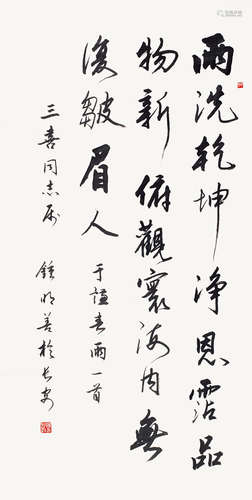 雨洗乾坤淨恩霑品
物新俯觀寰海内無
復皺眉人
于謙春雨一首
三喜同志属
鍾明善於長安